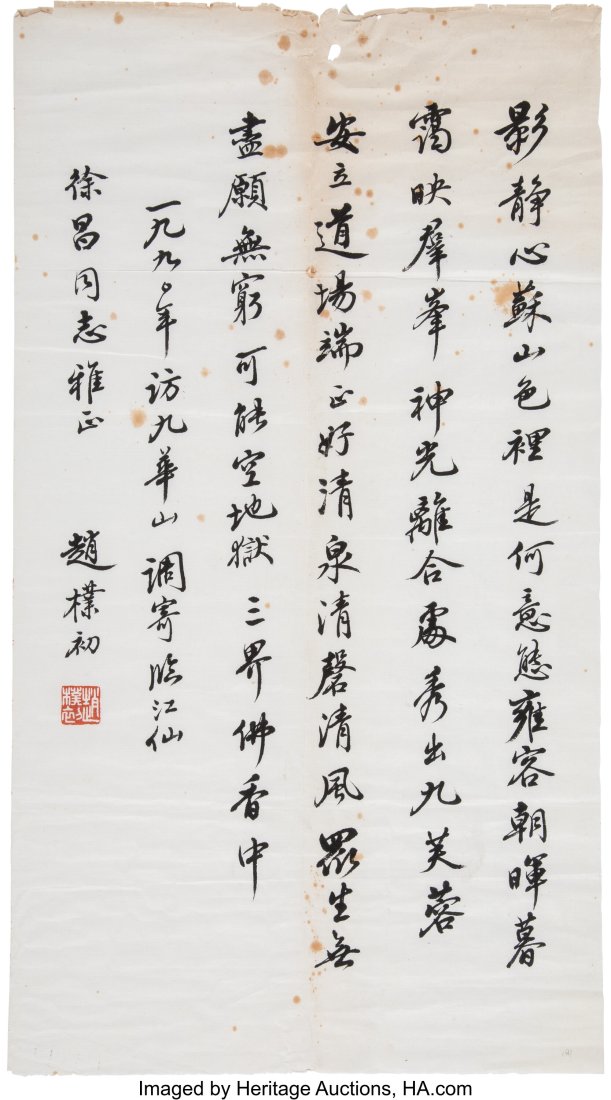 影靜心蘇山色裡是何意態雍容朝暉暮
靄映羣峯神光離合處秀出九芙蓉
安立道場端正好清泉清磬清風眾生無
盡願無窮可能空地獄三界佛香中
一九九〇年訪九華山調寄臨江仙
徐昌同志雅正
趙樸初
趙樸初
Imaged by Heritage Auctions, HA.com